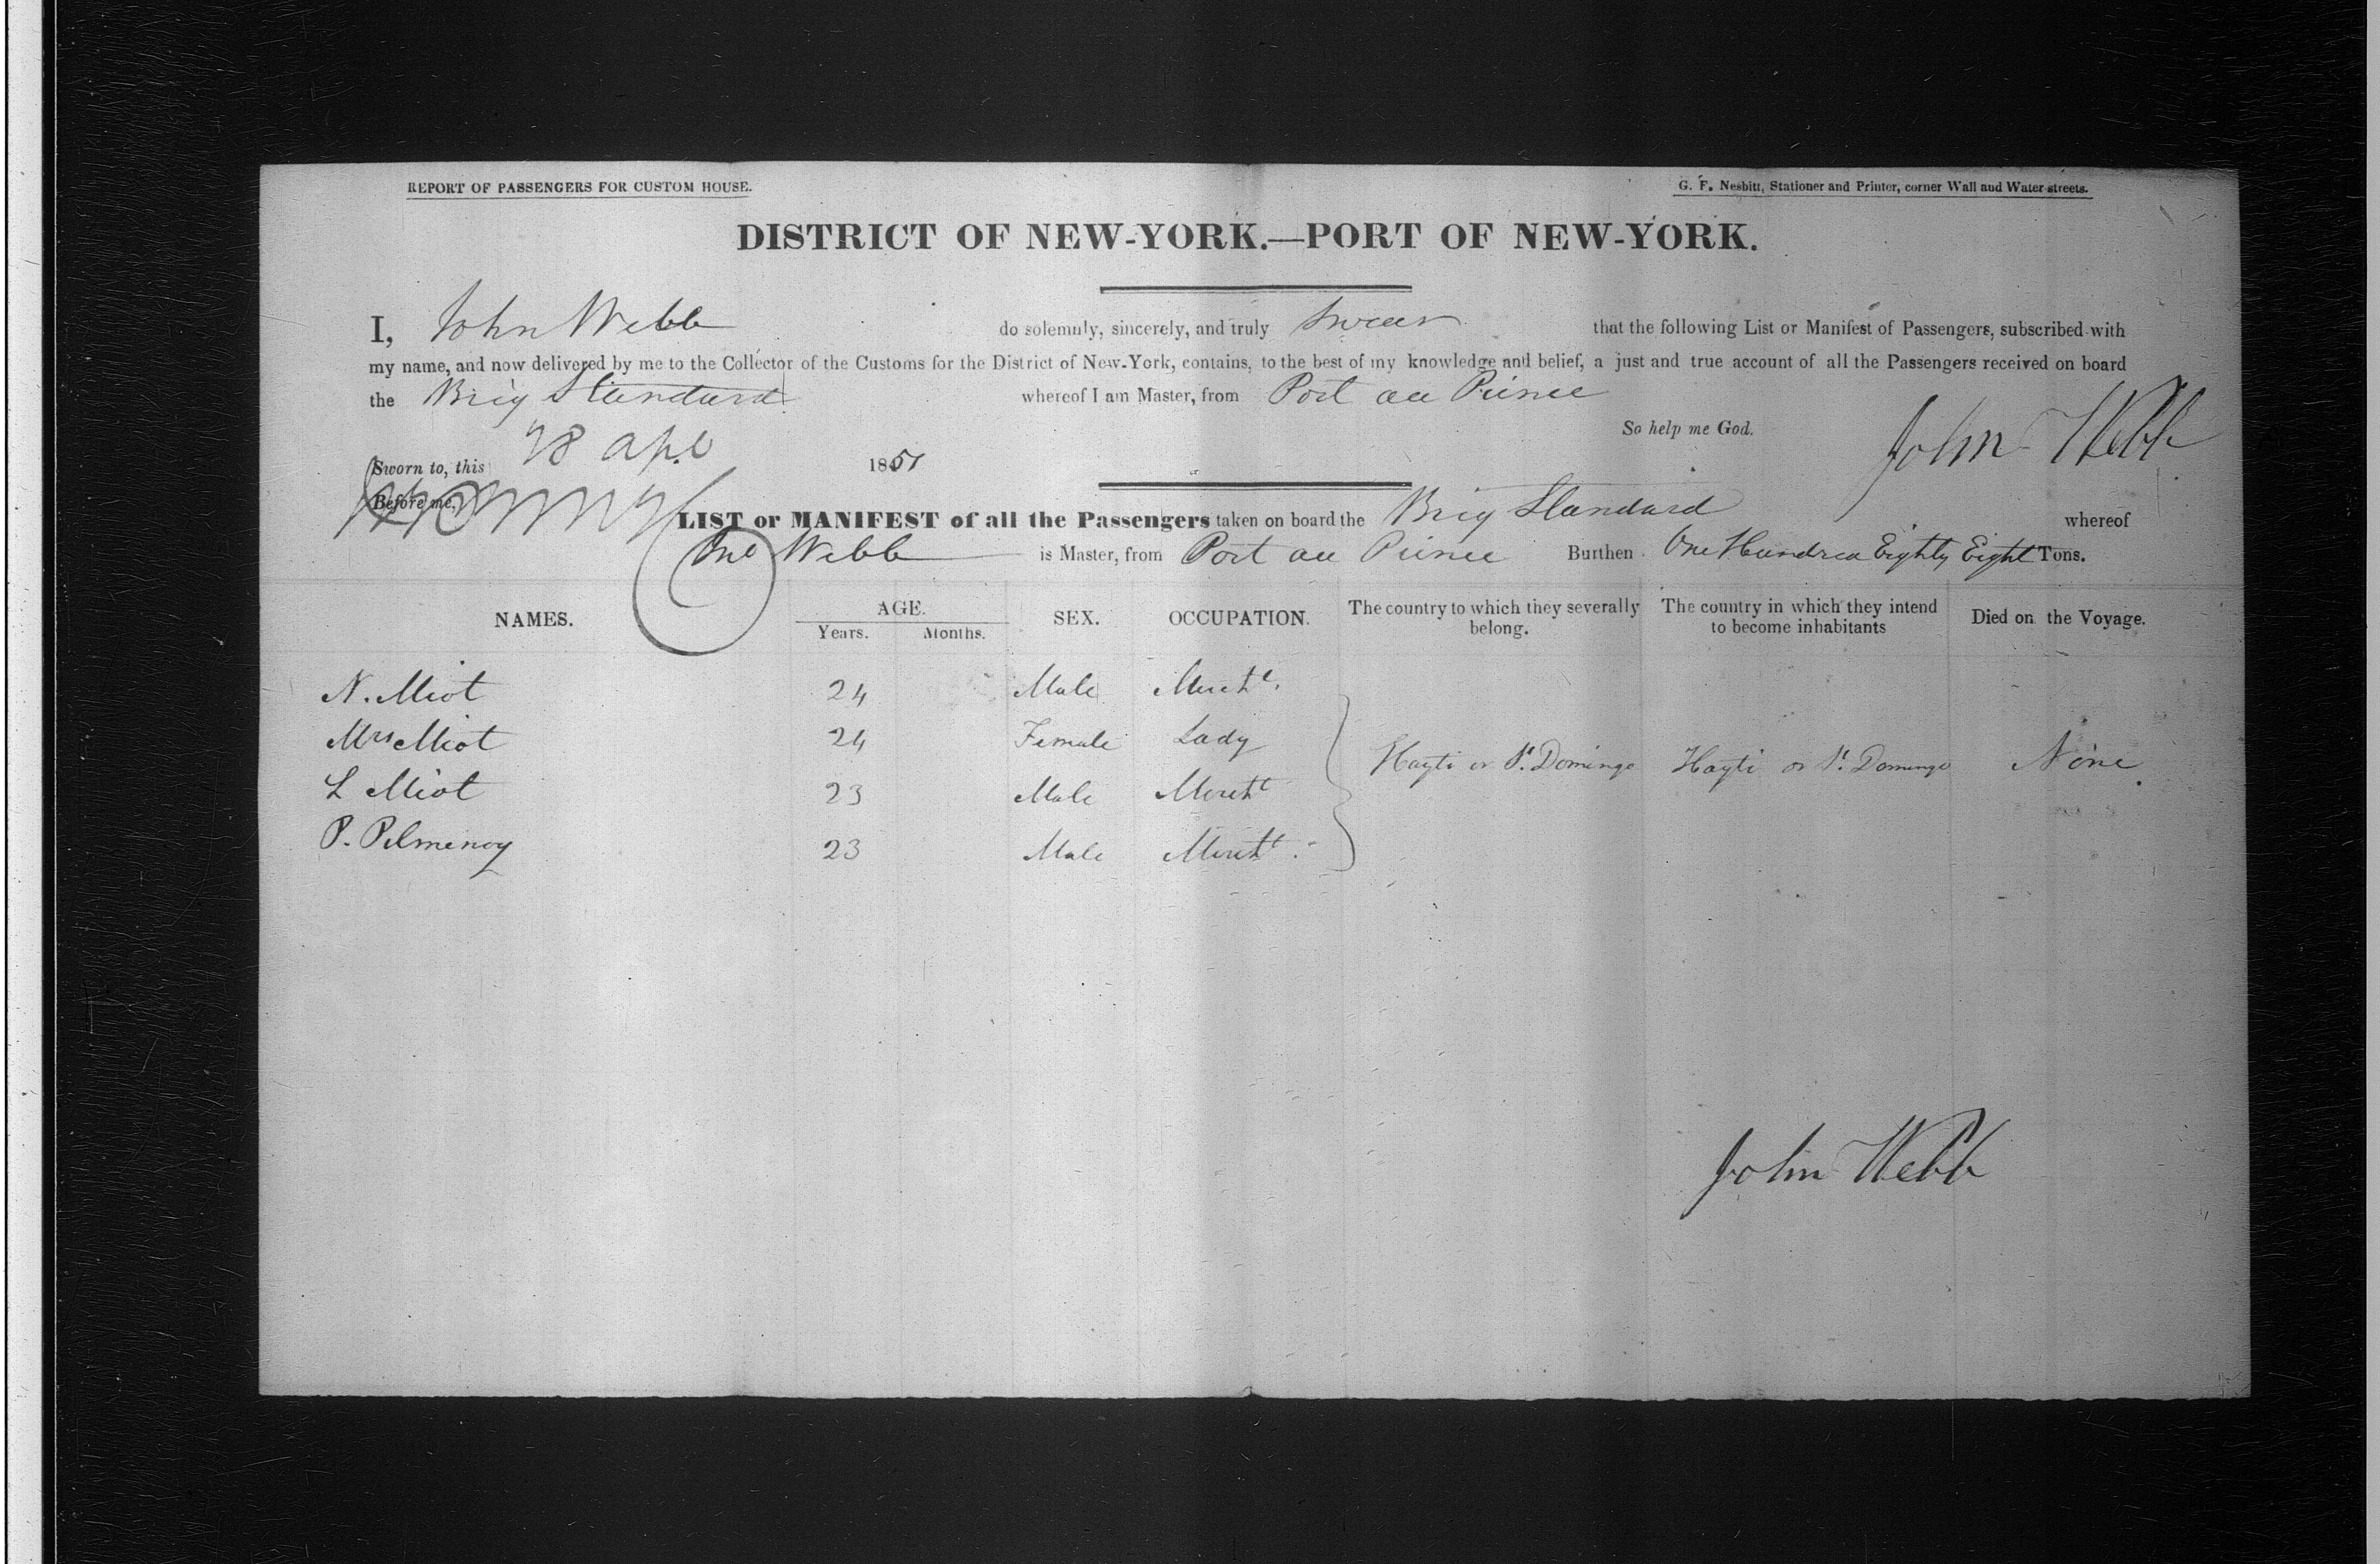 REPORT OF PASSENGERS FOR CUSTOM HOUSE.
G. F. Nesbitt, Stationer and Printer, corner Wall and Water streets.
DISTRICT OF NEW-YORK.—PORT OF NEW-YORK.
I, John Webb do solemnly, sincerely, and truly swear that the following List or Manifest of Passengers, subscribed with
my name, and now delivered by me to the Collector of the Customs for the District of New-York, contains, to the best of my knowledge and belief, a just and true account of all the Passengers received on board
the Brig Standard whereof I am Master, from Port au Prince
So help me God. John Webb
Sworn to, this 28 Apl 1851
Before me,
LIST or MANIFEST of all the Passengers taken on board the Brig Standard whereof
Jno Webb is Master, from Port au Prince Burthen One Hundred Eighty Eight Tons.
NAMES. AGE. Years. Months. SEX. OCCUPATION. The country to which they severally belong. The country in which they intend to become inhabitants Died on the Voyage.
N. Miot 24 Male Mercht.
Mrs Miot 24 Female Lady
Hayti or St. Domingo Hayti or St. Domingo None
L Miot 23 Male Mercht
P. Pilmenoy 23 Male Mercht.
John Webb